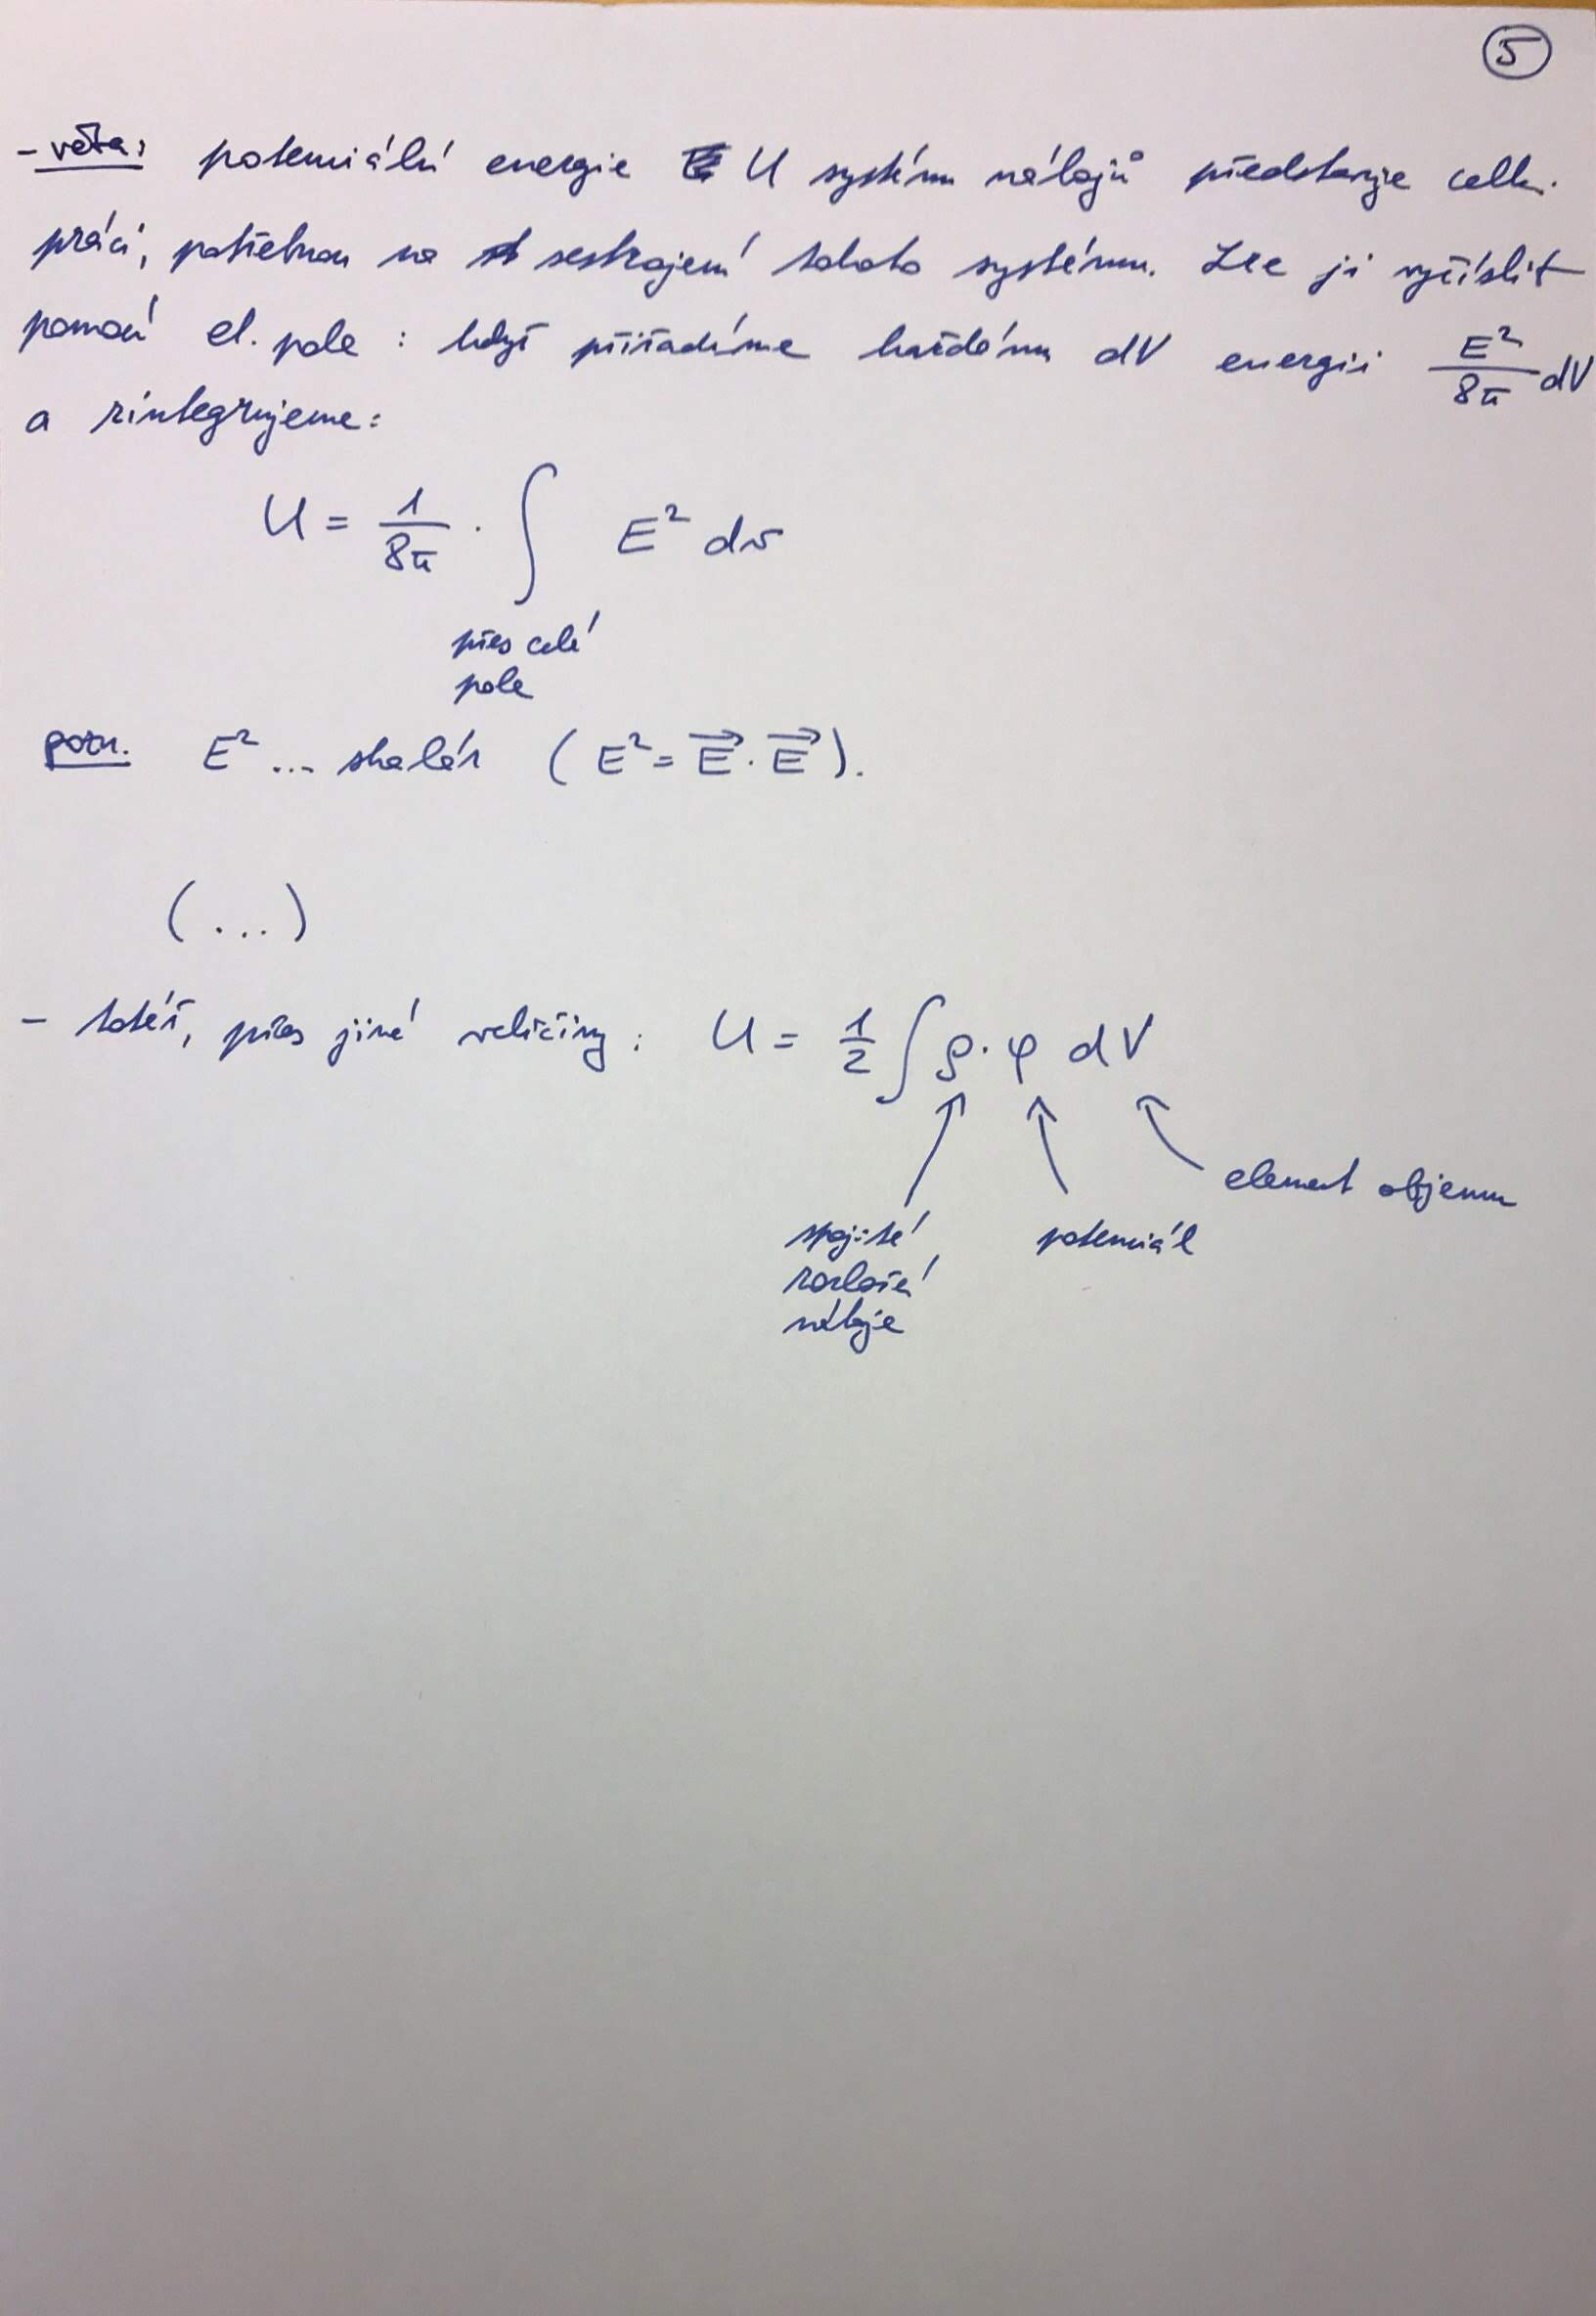 5
- věta: potenciální energie U systému nábojů představuje celk.
práci, potřebnou na sestrojení tohoto systému. Lze ji vyčíslit
pomocí el. pole : když přiřadíme každému dV energii E²/8π dV
a zintegrujeme:
U = 1/8π · ∫ E² dv
přes celé
pole
pozn. E² ... skalár ( E² = E⃗ · E⃗ ).
(...)
- totéž, přes jiné veličiny : U = 1/2 ∫ ρ · φ dV
element objemu
spojité potenciál
rozložení
náboje